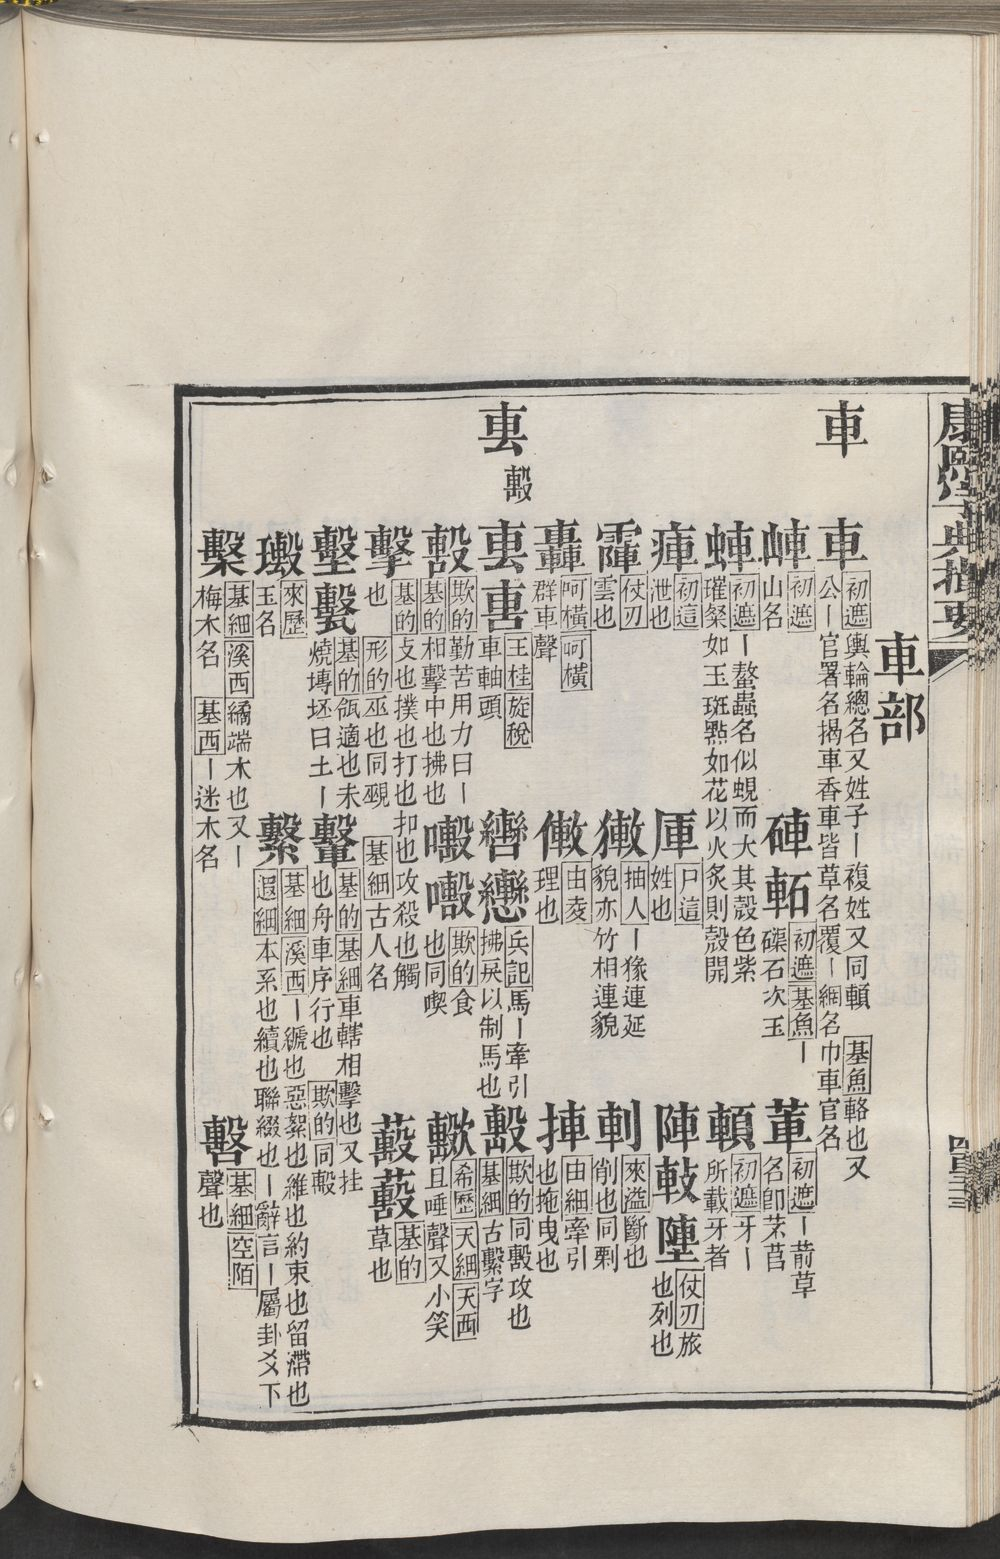 康熙字典撮要
車部
車
車 初遮 輿輪總名又姓子ー複姓又同䡐 基魚 輅也又
公ー官署名揭車香車皆草名覆ー網名巾車官名
初遮 山名
硨 初遮 基魚 ー磲石次玉
莗 初遮 ー莿草名卽芣苢
初遮 ー螯蟲名似蜆而大其殼色紫
璀粲如玉斑㸃如花以火炙則殼開
初遮 牙ー所載牙者
初這 泄也
厙 尸這 姓也
陣 仗刃 旅也列也
仗刃 雲也
抽人 ー獤連延貌亦竹相連貌
來溢 斷也削也同剽
轟 呵橫 呵橫 群車聲
由夌 理也
由細 牽引也拖曳也
軎 王桂 旋稅 車軸頭
轡 兵記 馬ー牽引拂戾以制馬也
欺的 同毄攻也 基細 古繫字
毄 欺的 勤苦用力曰ー 基的 相擊中也拂也
欺的 食也同喫
希歷 天細 天西 且唾聲又小笑
擊 基的 攴也撲也打也扣也攻殺也觸也 形的 巫也同覡 基細 古人名
基的 草也
墼 基的 瓴適也未燒塼坯曰土ー
轚 基的 基細 車轄相擊也又挂也舟車序行也 欺的 同毄
來歷 玉名
繫 基細 溪西 ー褫也惡絮也維也約束也留滯也
遐細 本系也續也聯綴也ー辭言ー屬卦爻下
檕 基細 溪西 繘端木也又ー梅木名 基西 ー迷木名
基細 空陌 聲也